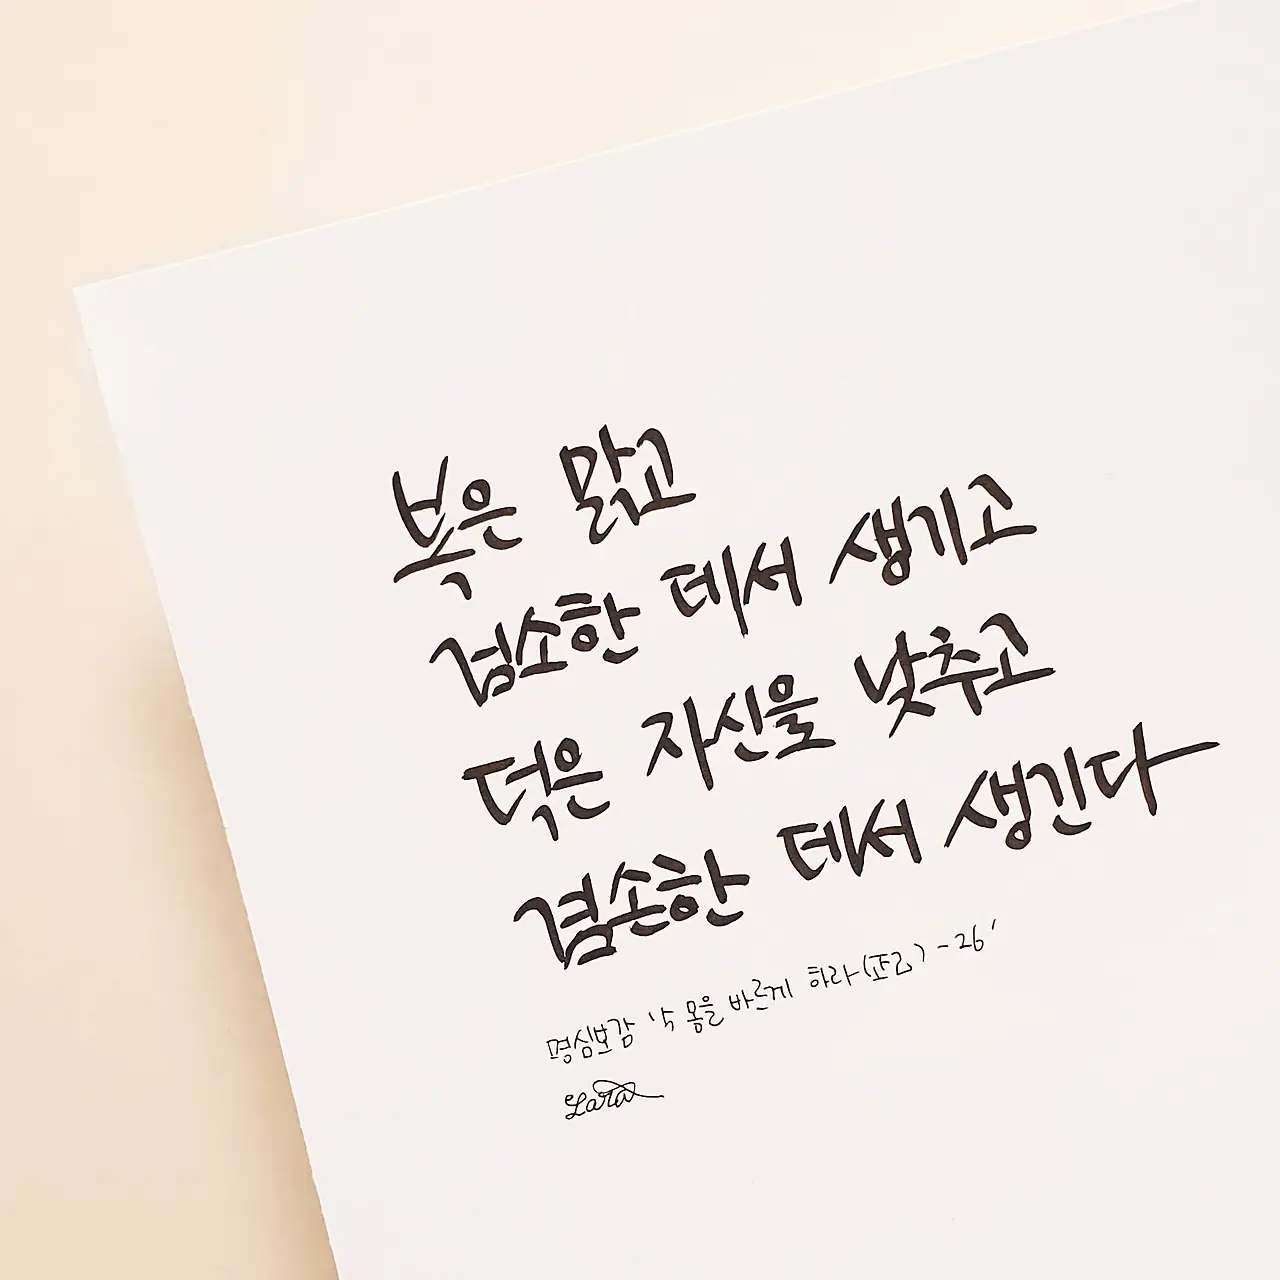 복은 맑고
검소한 데서 생기고
덕은 자신을 낮추고
겸손한 데서 생긴다
명심보감 '5 몸을 바르게 하라(正己) - 26'
Lara